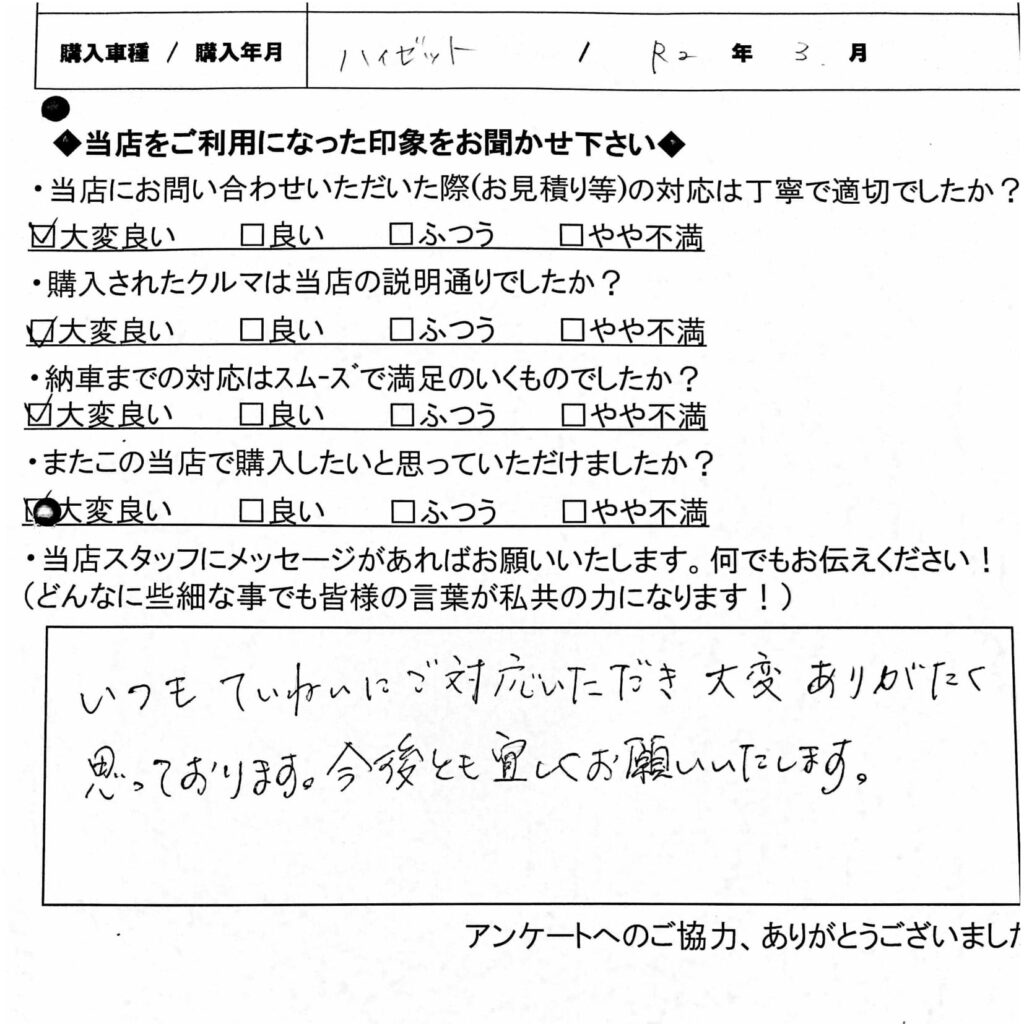 購入車種 / 購入年月 ハイゼット / R2 年 3. 月
◆当店をご利用になった印象をお聞かせ下さい◆
・当店にお問い合わせいただいた際(お見積り等)の対応は丁寧で適切でしたか?
☑大変良い □良い □ふつう □やや不満
・購入されたクルマは当店の説明通りでしたか?
☑大変良い □良い □ふつう □やや不満
・納車までの対応はスムーズで満足のいくものでしたか?
☑大変良い □良い □ふつう □やや不満
・またこの当店で購入したいと思っていただけましたか?
☑大変良い □良い □ふつう □やや不満
・当店スタッフにメッセージがあればお願いいたします。何でもお伝えください!
(どんなに些細な事でも皆様の言葉が私共の力になります!)
いつも ていねいにご対応いただき 大変 ありがたく
思っております。今後とも宜しくお願いいたします。
アンケートへのご協力、ありがとうございました